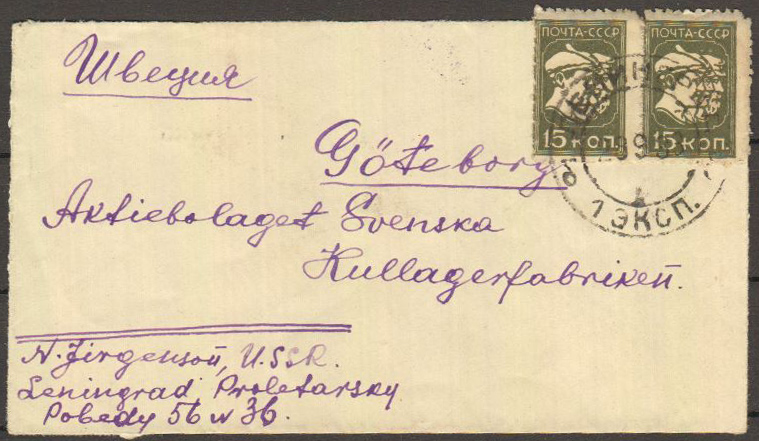 ПОЧТА-СССР ПОЧТА-СССР
15 КОП. 15 КОП.
1 ЭКСП.
Швеция
Göteborg
Aktiebolaget Svenska
Kullagerfabriken.
N. Jirgenson, U.SSR.
Leningrad, Proletarsky
Pobedy 56 w 36.